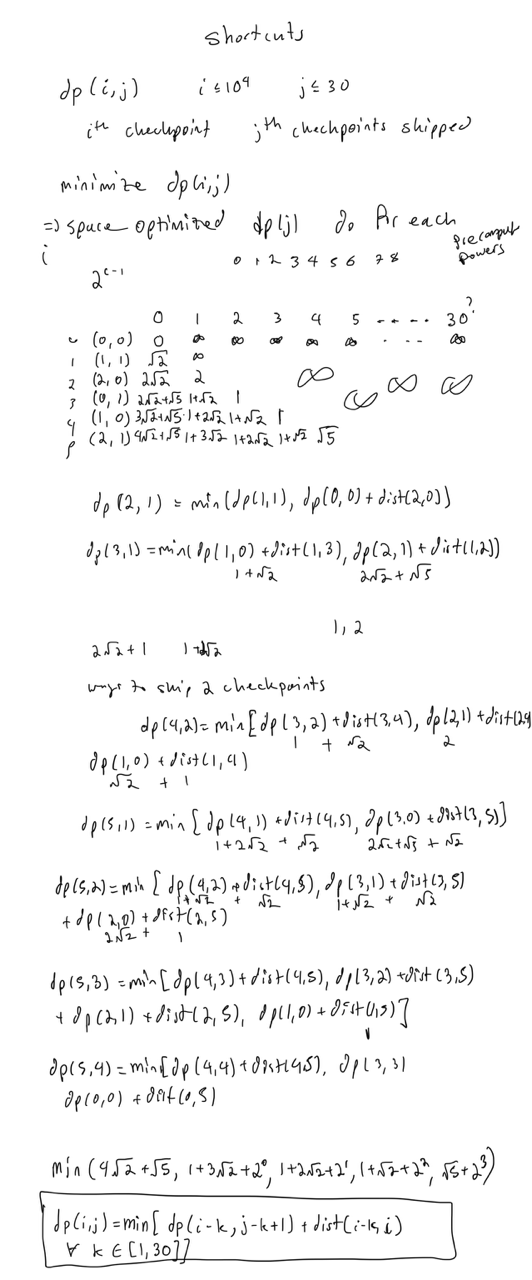 shortcuts
dp(i,j) i ≤ 10⁴ j ≤ 30
iᵗʰ checkpoint jᵗʰ checkpoints skipped
minimize dp(i,j)
=> space optimized dp(j) do for each
i
precomput
powers
2ᶜ⁻¹ 0 1 2 3 4 5 6 7 8
0 1 2 3 4 5 ---- 30?
0 (0,0) 0 ∞ ∞ ∞ ∞ ∞ ... ∞
1 (1,1) √2 ∞
2 (2,0) 2√2 2 ∞ ∞ ∞ ∞
3 (0,1) 2√2+√5 1+√2 1
4 (1,0) 3√2+√5 1+2√2 1+√2 1
5 (2,1) 4√2+√5 1+3√2 1+2√2 1+√2 √5
dp(2,1) = min(dp(1,1), dp(0,0)+dist(2,0))
dp(3,1) = min(dp(1,0)+dist(1,3), dp(2,1)+dist(1,2))
1+√2 2√2+√5
1,2
2√2+1 1+2√2
ways to skip 2 checkpoints
dp(4,2) = min[dp(3,2)+dist(3,4), dp(2,1)+dist(2,4)
1 + √2 2
dp(1,0)+dist(1,4)
√2 + 1
dp(5,1) = min[dp(4,1)+dist(4,5), dp(3,0)+dist(3,5)]
1+2√2 + √2 2√2+√5 + √2
dp(5,2) = min[dp(4,2)+dist(4,5), dp(3,1)+dist(3,5)
1+√2 + √2 1+√2 + √2
+ dp(2,0)+dist(2,5)
2√2 + 1
dp(5,3) = min[dp(4,3)+dist(4,5), dp(3,2)+dist(3,5)
+ dp(2,1)+dist(2,5), dp(1,0)+dist(1,5)]
dp(5,4) = min[dp(4,4)+dist(4,5), dp(3,3)
dp(0,0)+dist(0,5)
min(4√2+√5, 1+3√2+2⁰, 1+2√2+2¹, 1+√2+2², √5+2³)
dp(i,j) = min[dp(i-k, j-k+1)+dist(i-k,i)
∀ k ∈ [1,30]]